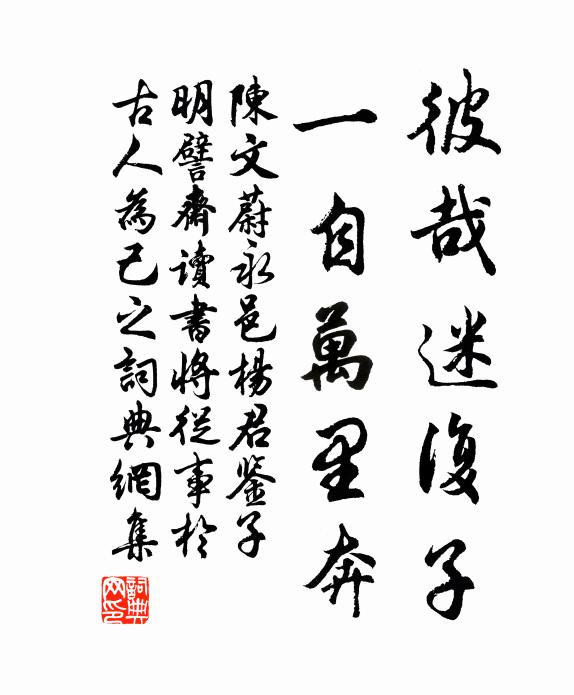 彼哉迷復子
一自萬里奔
陳文蔚永邑楊君鉴子
明譬齋讀書將從事於
古人為己之詞典網集
詞典网印